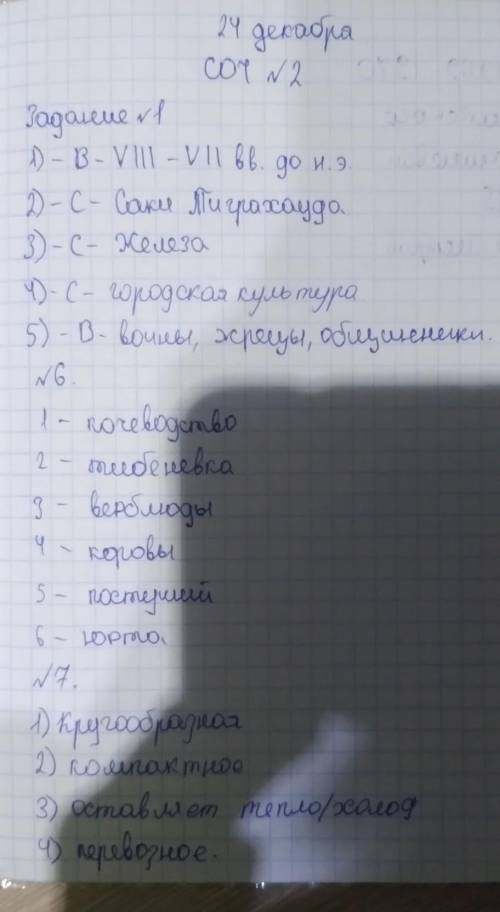 24 декабря
СОЧ №2
Задание №1
1) - В - VIII - VII вв. до н.э.
2) - С - Саки Тиграхауда
3) - С - Железа
4) - С - городская культура
5) - В - воины, жрецы, общинники.
№6.
1 - кочеводство
2 - тебеневка
3 - верблюды
4 - коровы
5 - пастуший
6 - Юрта.
№7.
1) Кругообразная
2) компактное
3) оставляет тепло/холод
4) перевозное.